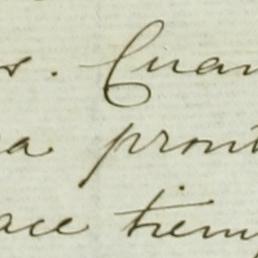 s. Cuan
a pront
ace tiemp